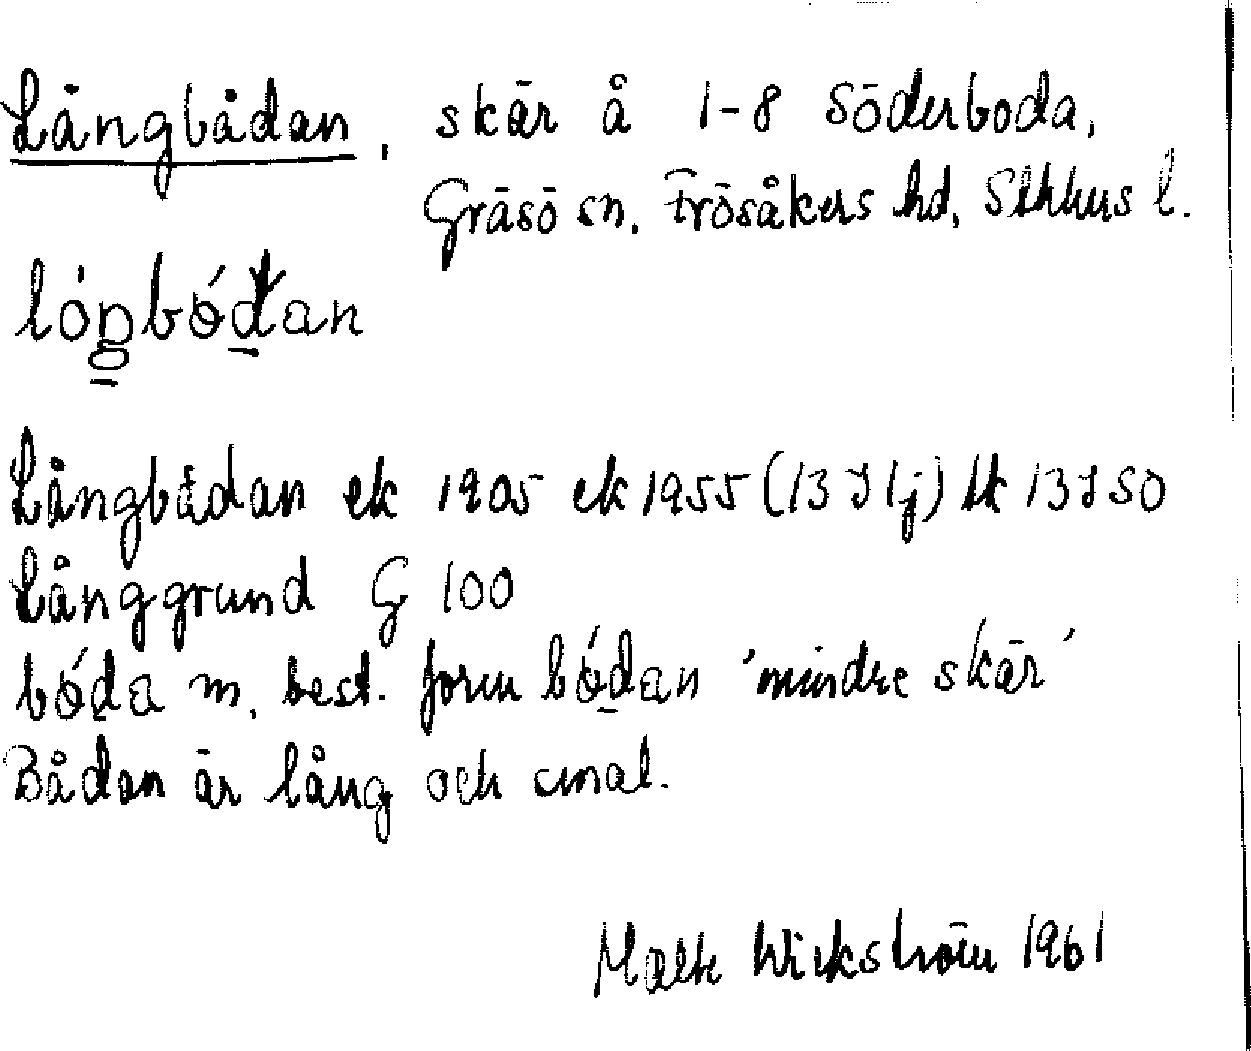 Långbådan, skär å 1-8 Söderboda,
Gräsö sn. Frösåkers hd, Sthlms l.
lóŋbóđan
Långbådan ek 1905 ek 1955 (13 I 1j) tk 13 I SO
Långgrund G 100
bóda m. best. form bódan 'mindre skär'
Bådan är lång och smal.
Malte Wirkström 1961